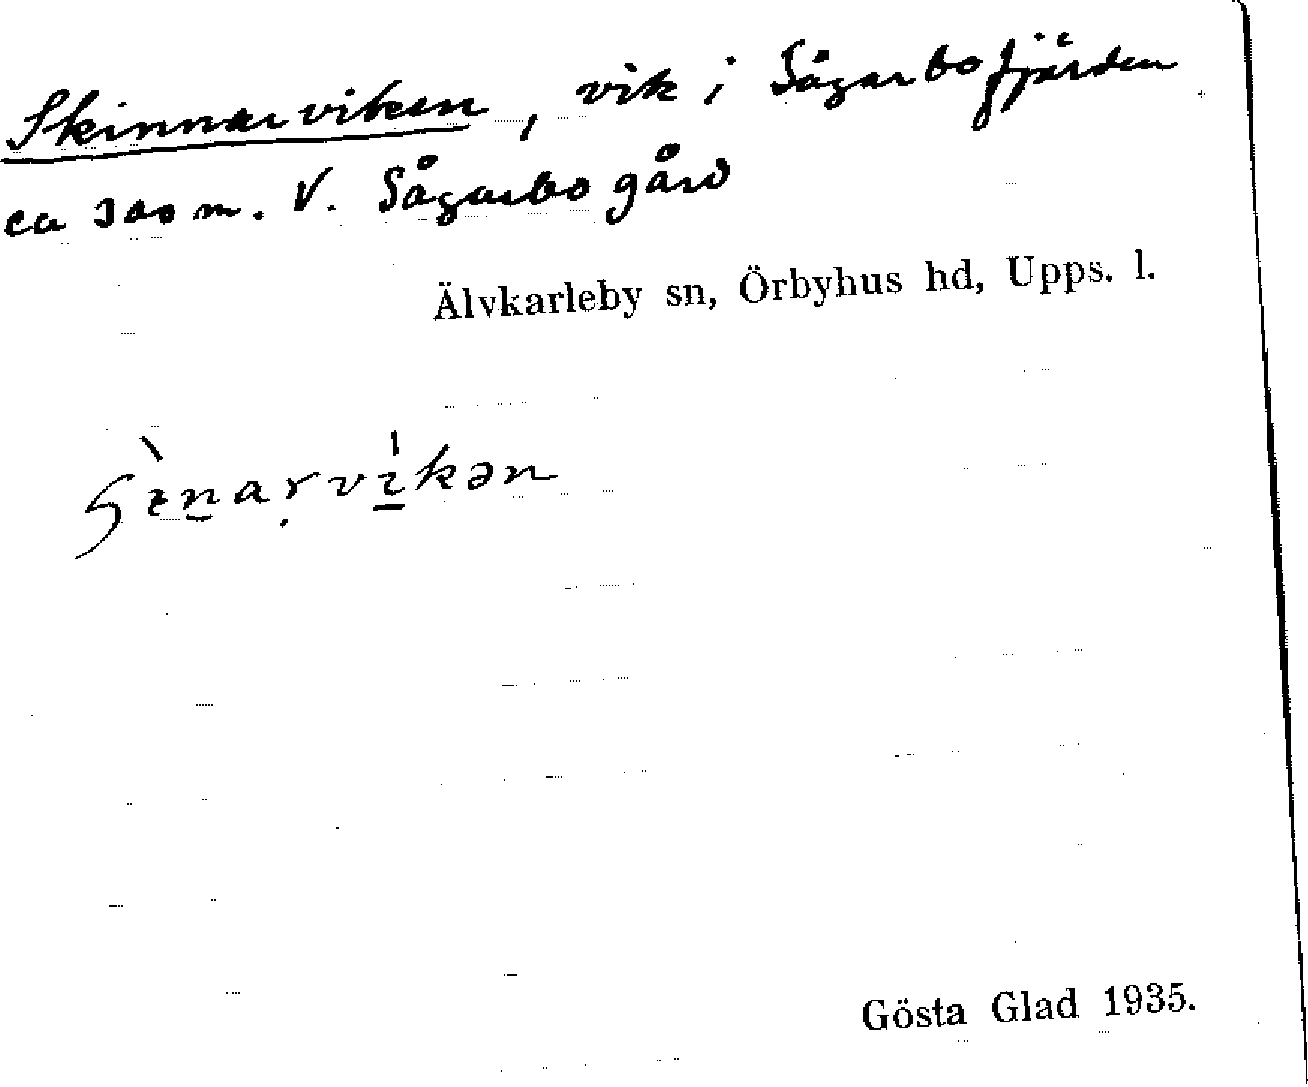 Skinnarviken, vik i Sågarbofjärden
ca 300 m. V. Sågarbo gård
Älvkarleby sn, Örbyhus hd, Upps. l.
Gösta Glad 1935.